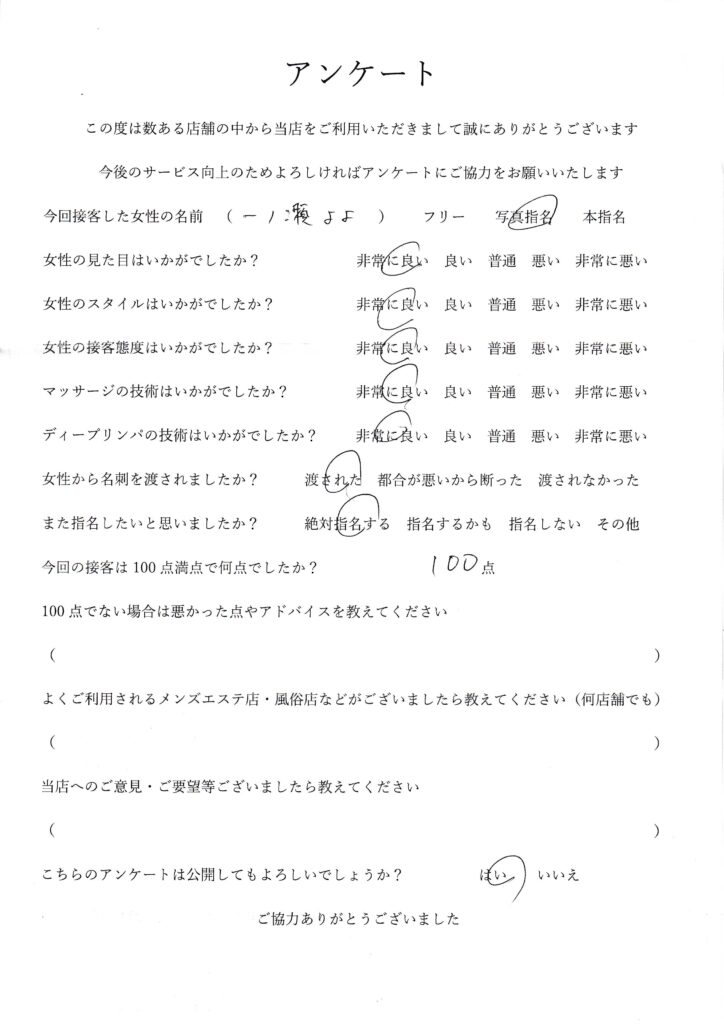 アンケート
この度は数ある店舗の中から当店をご利用いただきまして誠にありがとうございます
今後のサービス向上のためよろしければアンケートにご協力をお願いいたします
今回接客した女性の名前 （ 一ノ瀬 よよ ） フリー 写真指名 本指名
女性の見た目はいかがでしたか？ 非常に良い 良い 普通 悪い 非常に悪い
女性のスタイルはいかがでしたか？ 非常に良い 良い 普通 悪い 非常に悪い
女性の接客態度はいかがでしたか？ 非常に良い 良い 普通 悪い 非常に悪い
マッサージの技術はいかがでしたか？ 非常に良い 良い 普通 悪い 非常に悪い
ディープリンパの技術はいかがでしたか？ 非常に良い 良い 普通 悪い 非常に悪い
女性から名刺を渡されましたか？ 渡された 都合が悪いから断った 渡されなかった
また指名したいと思いましたか？ 絶対指名する 指名するかも 指名しない その他
今回の接客は100点満点で何点でしたか？ 100点
100点でない場合は悪かった点やアドバイスを教えてください
（ ）
よくご利用されるメンズエステ店・風俗店などがございましたら教えてください（何店舗でも）
（ ）
当店へのご意見・ご要望等ございましたら教えてください
（ ）
こちらのアンケートは公開してもよろしいでしょうか？ はい いいえ
ご協力ありがとうございました